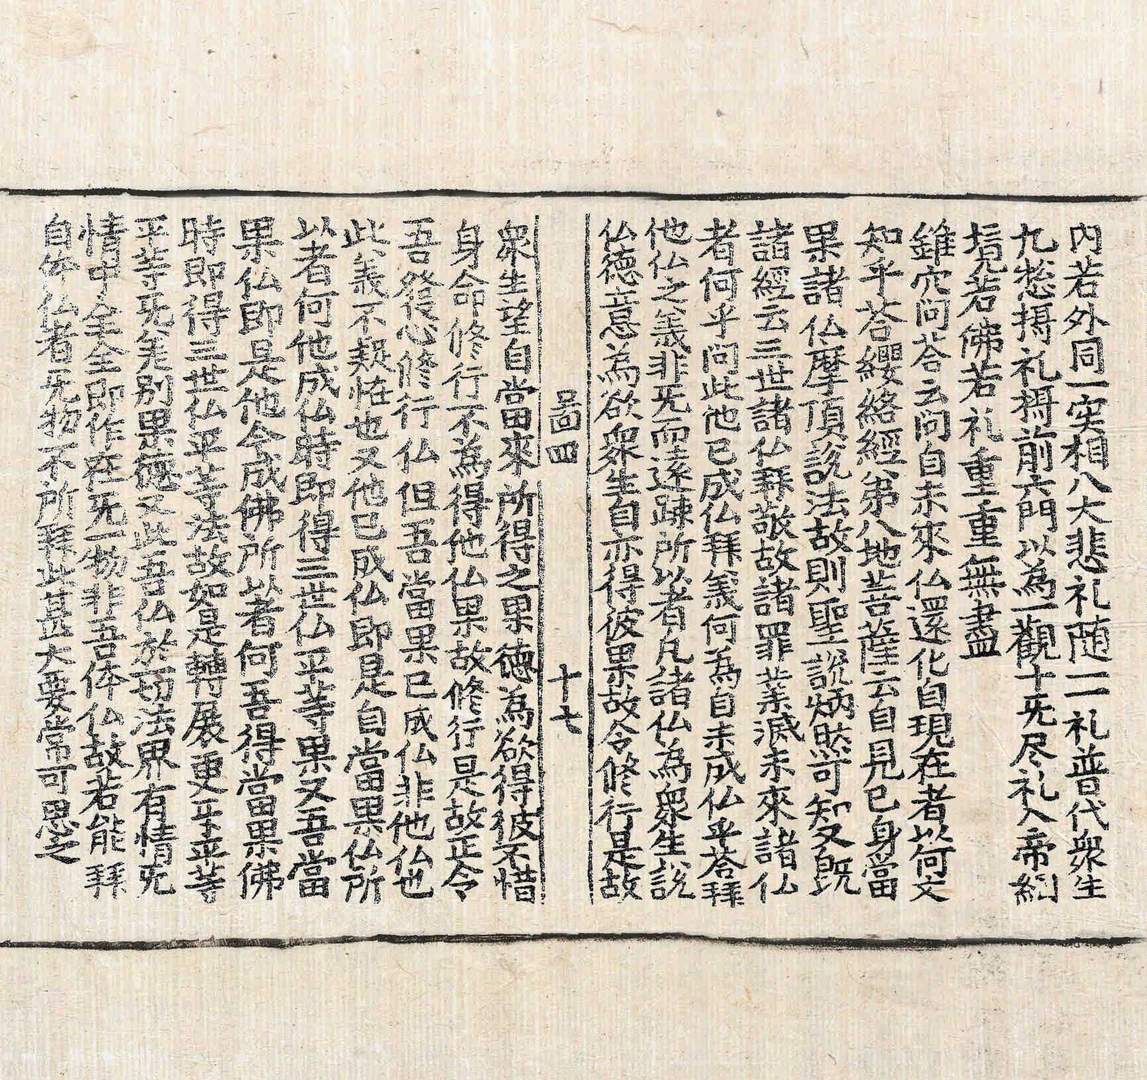 內若外同一实相八大悲礼随一一礼普代衆生
九惣摂礼摂前六門以為一觀十旡尽礼入帝網
境若佛若礼重重無盡
錐穴問荅云問自未來仏還化自現在者以何文
知乎荅纓絡經苐八地菩薩云自見己身當
果諸仏摩頂說法故則聖說炳㸐可知又旣
諸經云三世諸仏拜敬故諸罪業滅未來諸仏
者何乎問此他已成仏拜義何為自未成仏乎荅拜
他仏之義非旡而遠踈所以者凡諸仏為衆生說
仏德意為欲衆生自亦得彼果故令修行是故
啚四　十七
衆生望自當來所得之果德為欲得彼不惜
身命修行不為得他仏果故修行是故正令
吾發心修行仏但吾當果已成仏非他仏也
此義不疑恠也又他已成仏即是自當果仏所
以者何他成仏時即得三世仏平等果又吾當
果仏即是他今成佛所以者何吾得當果佛
時即得三世仏平等法故如是轉展更平平等
平等旡差別果德又此吾仏於一切法界有情旡
情中全全即作在旡一物非吾体仏故若能拜
自体仏者旡物不所拜此甚大要常可思之